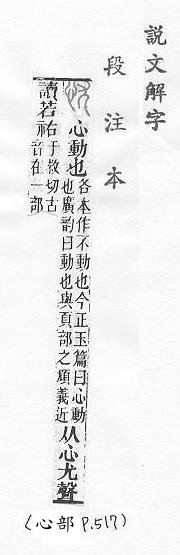 說文解字
段注本
忧 心動也各本作不動也今正玉篇曰心動也廣韵曰動也與頁部之頄義近从心尤聲
讀若祐于救切古音在一部
(心部 P.517)